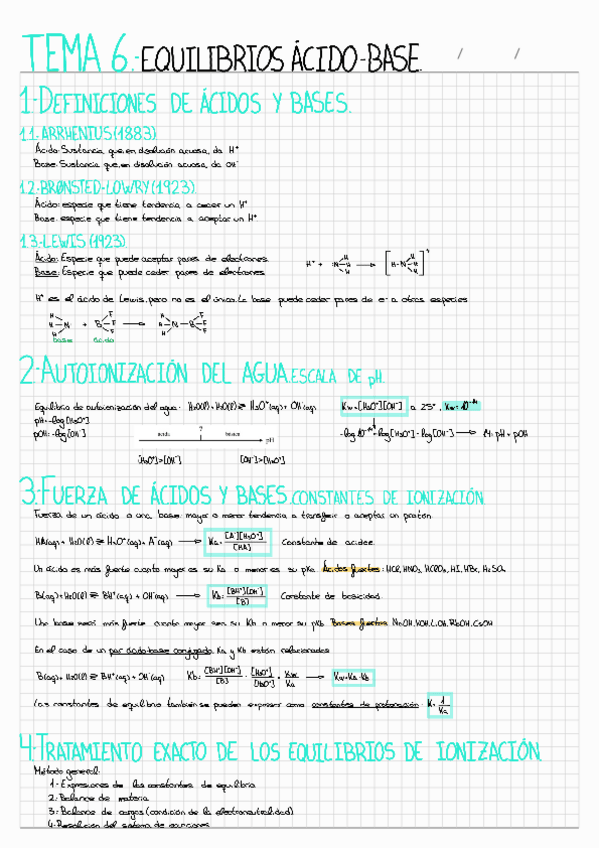 TEMA 6.-EQUILIBRIOS ÁCIDO-BASE. / /
1.-DEFINICIONES DE ÁCIDOS Y BASES.
1.1.-ARRHENIUS (1883)
Ácido: Sustancia que, en disolución acuosa, da H⁺
Base: Sustancia que, en disolución acuosa, da OH⁻
1.2.-BRØNSTED-LOWRY (1923).
Ácido: especie que tiene tendencia a ceder un H⁺
Base: especie que tiene tendencia a aceptar un H⁺
1.3.-LEWIS (1923).
Ácido: Especie que puede aceptar pares de electrones.
Base: Especie que puede ceder pares de electrones.
H⁺ es el ácido de Lewis, pero no es el único. La base puede ceder pares de e⁻ a otras especies
base ácido
2.-AUTOIONIZACIÓN DEL AGUA. ESCALA DE pH.
Equilibrio de autoionización del agua: H₂O(l) + H₂O(l) ⇌ H₃O⁺(aq) + OH⁻(aq) Kw = [H₃O⁺][OH⁻] a 25°, Kw = 10⁻¹⁴
pH = -log[H₃O⁺]
pOH = -log[OH⁻] -log 10⁻¹⁴ = -log[H₃O⁺] - log[OH⁻] → 14 = pH + pOH
ácido 7 básico pH
[H₃O⁺]>[OH⁻] [OH⁻]>[H₃O⁺]
3.-FUERZA DE ÁCIDOS Y BASES. CONSTANTES DE IONIZACIÓN
Fuerza de un ácido o una base: mayor o menor tendencia a transferir o aceptar un protón
HA(aq) + H₂O(l) ⇌ H₃O⁺(aq) + A⁻(aq) → Ka = [A⁻][H₃O⁺] / [HA] Constante de acidez.
Un ácido es más fuerte cuanto mayor es su Ka o menor es su pKa. Ácidos fuertes: HCl, HNO₃, HClO₄, HI, HBr, H₂SO₄
B(aq) + H₂O(l) ⇌ BH⁺(aq) + OH⁻(aq) → Kb = [BH⁺][OH⁻] / [B] Constante de basicidad.
Una base será más fuerte cuanto mayor sea su Kb o menor su pKb. Bases fuertes: NaOH, KOH, LiOH, RbOH, CsOH
En el caso de un par ácido-base conjugado, Ka y Kb están relacionadas
B(aq) + H₂O(l) ⇌ BH⁺(aq) + OH⁻(aq) Kb = [BH⁺][OH⁻] / [B] · [H₃O⁺] / [H₃O⁺] = Kw / Ka → Kw = Ka·Kb
Las constantes de equilibrio también se pueden expresar como constantes de protonación: K = 1 / Ka
4.-TRATAMIENTO EXACTO DE LOS EQUILIBRIOS DE IONIZACIÓN
Método general:
1.- Expresiones de las constantes de equilibrio
2.- Balance de materia
3.- Balance de cargas (condición de la electroneutralidad)
4.- Resolución del sistema de ecuaciones